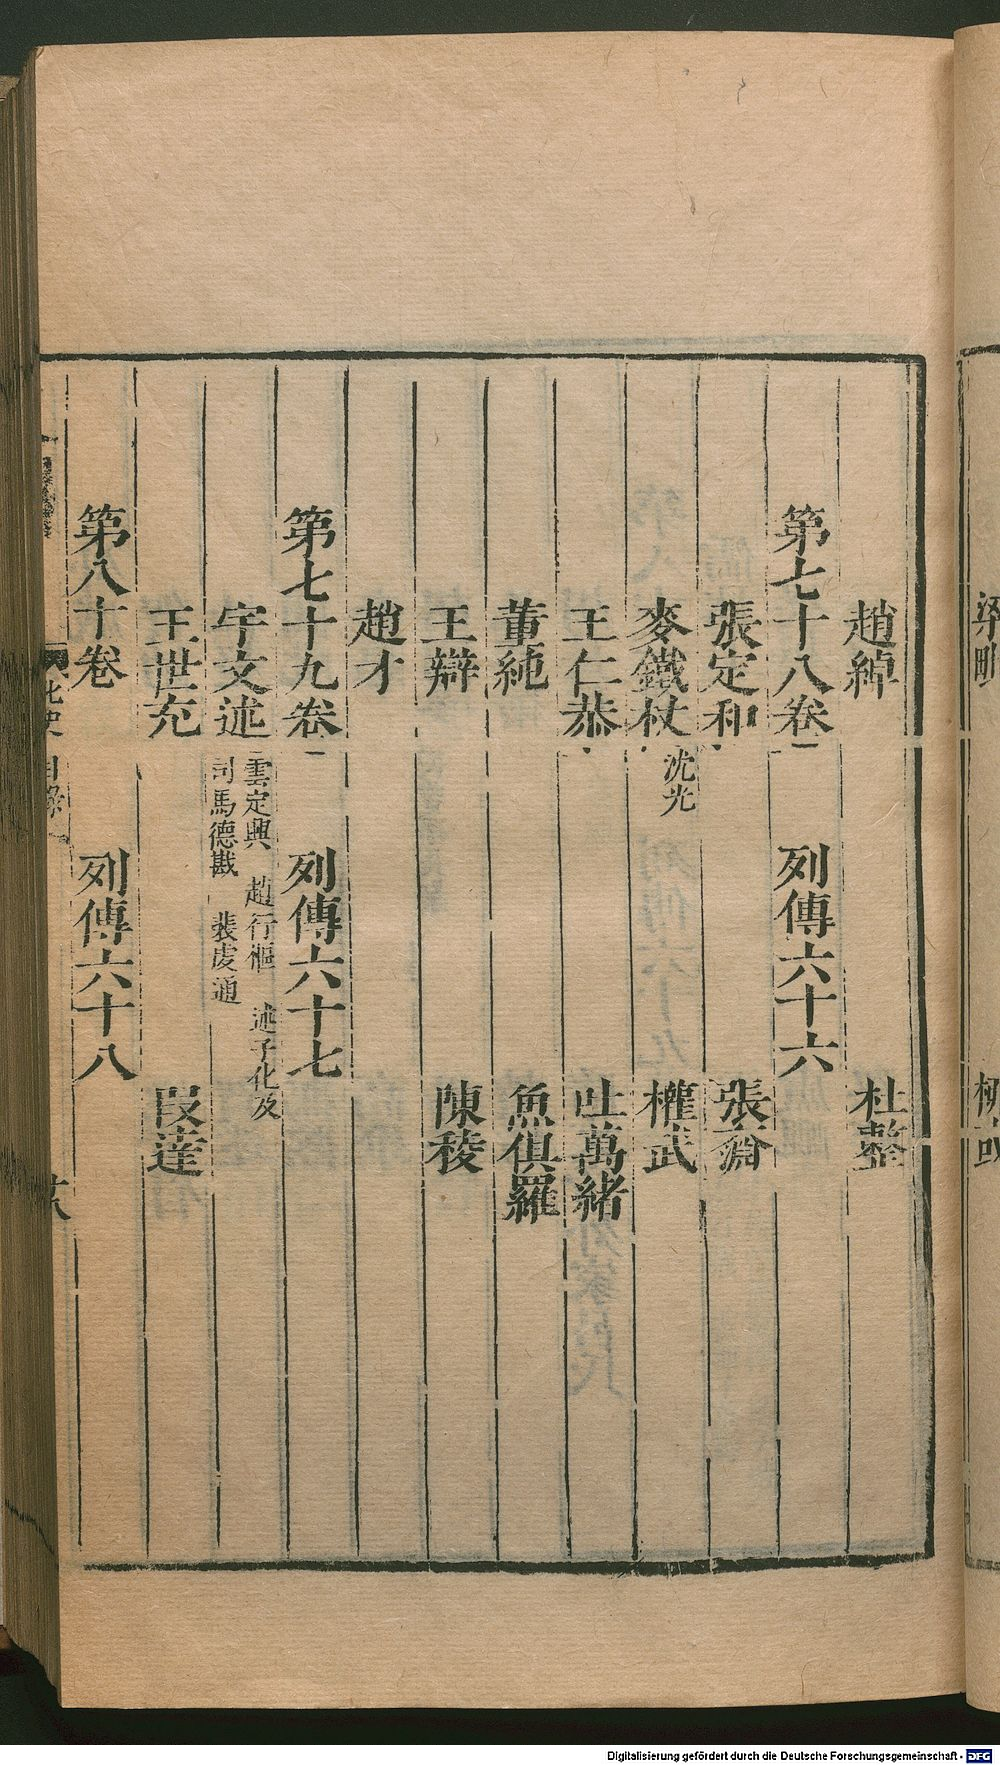 趙綽 杜整
第七十八卷 列傳六十六
張定和 張奫
麥鐵杖 沈光 權武
王仁恭 吐萬緒
董純 魚俱羅
王辯 陳稜
趙才
第七十九卷 列傳六十七
宇文述 雲定興 趙行樞 述子化及 司馬德戡 裴虔通
王世充 段達
第八十卷 列傳六十八
北史 目錄
Digitalisierung gefördert durch die Deutsche Forschungsgemeinschaft - DFG